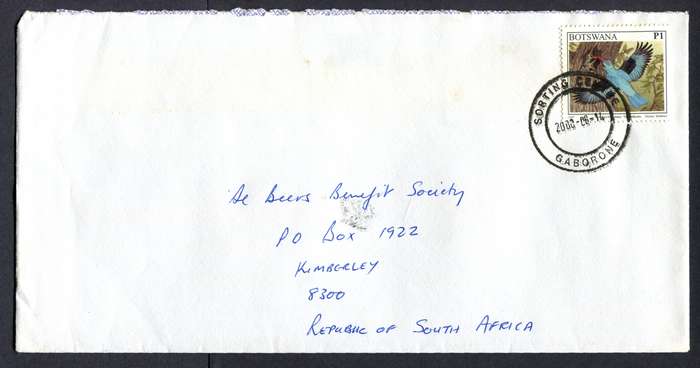 BOTSWANA P1
SORTING CENTRE
2000-08-14
GABORONE
De Beers Benefit Society
PO Box 1922
KIMBERLEY
8300
REPUBLIC OF SOUTH AFRICA